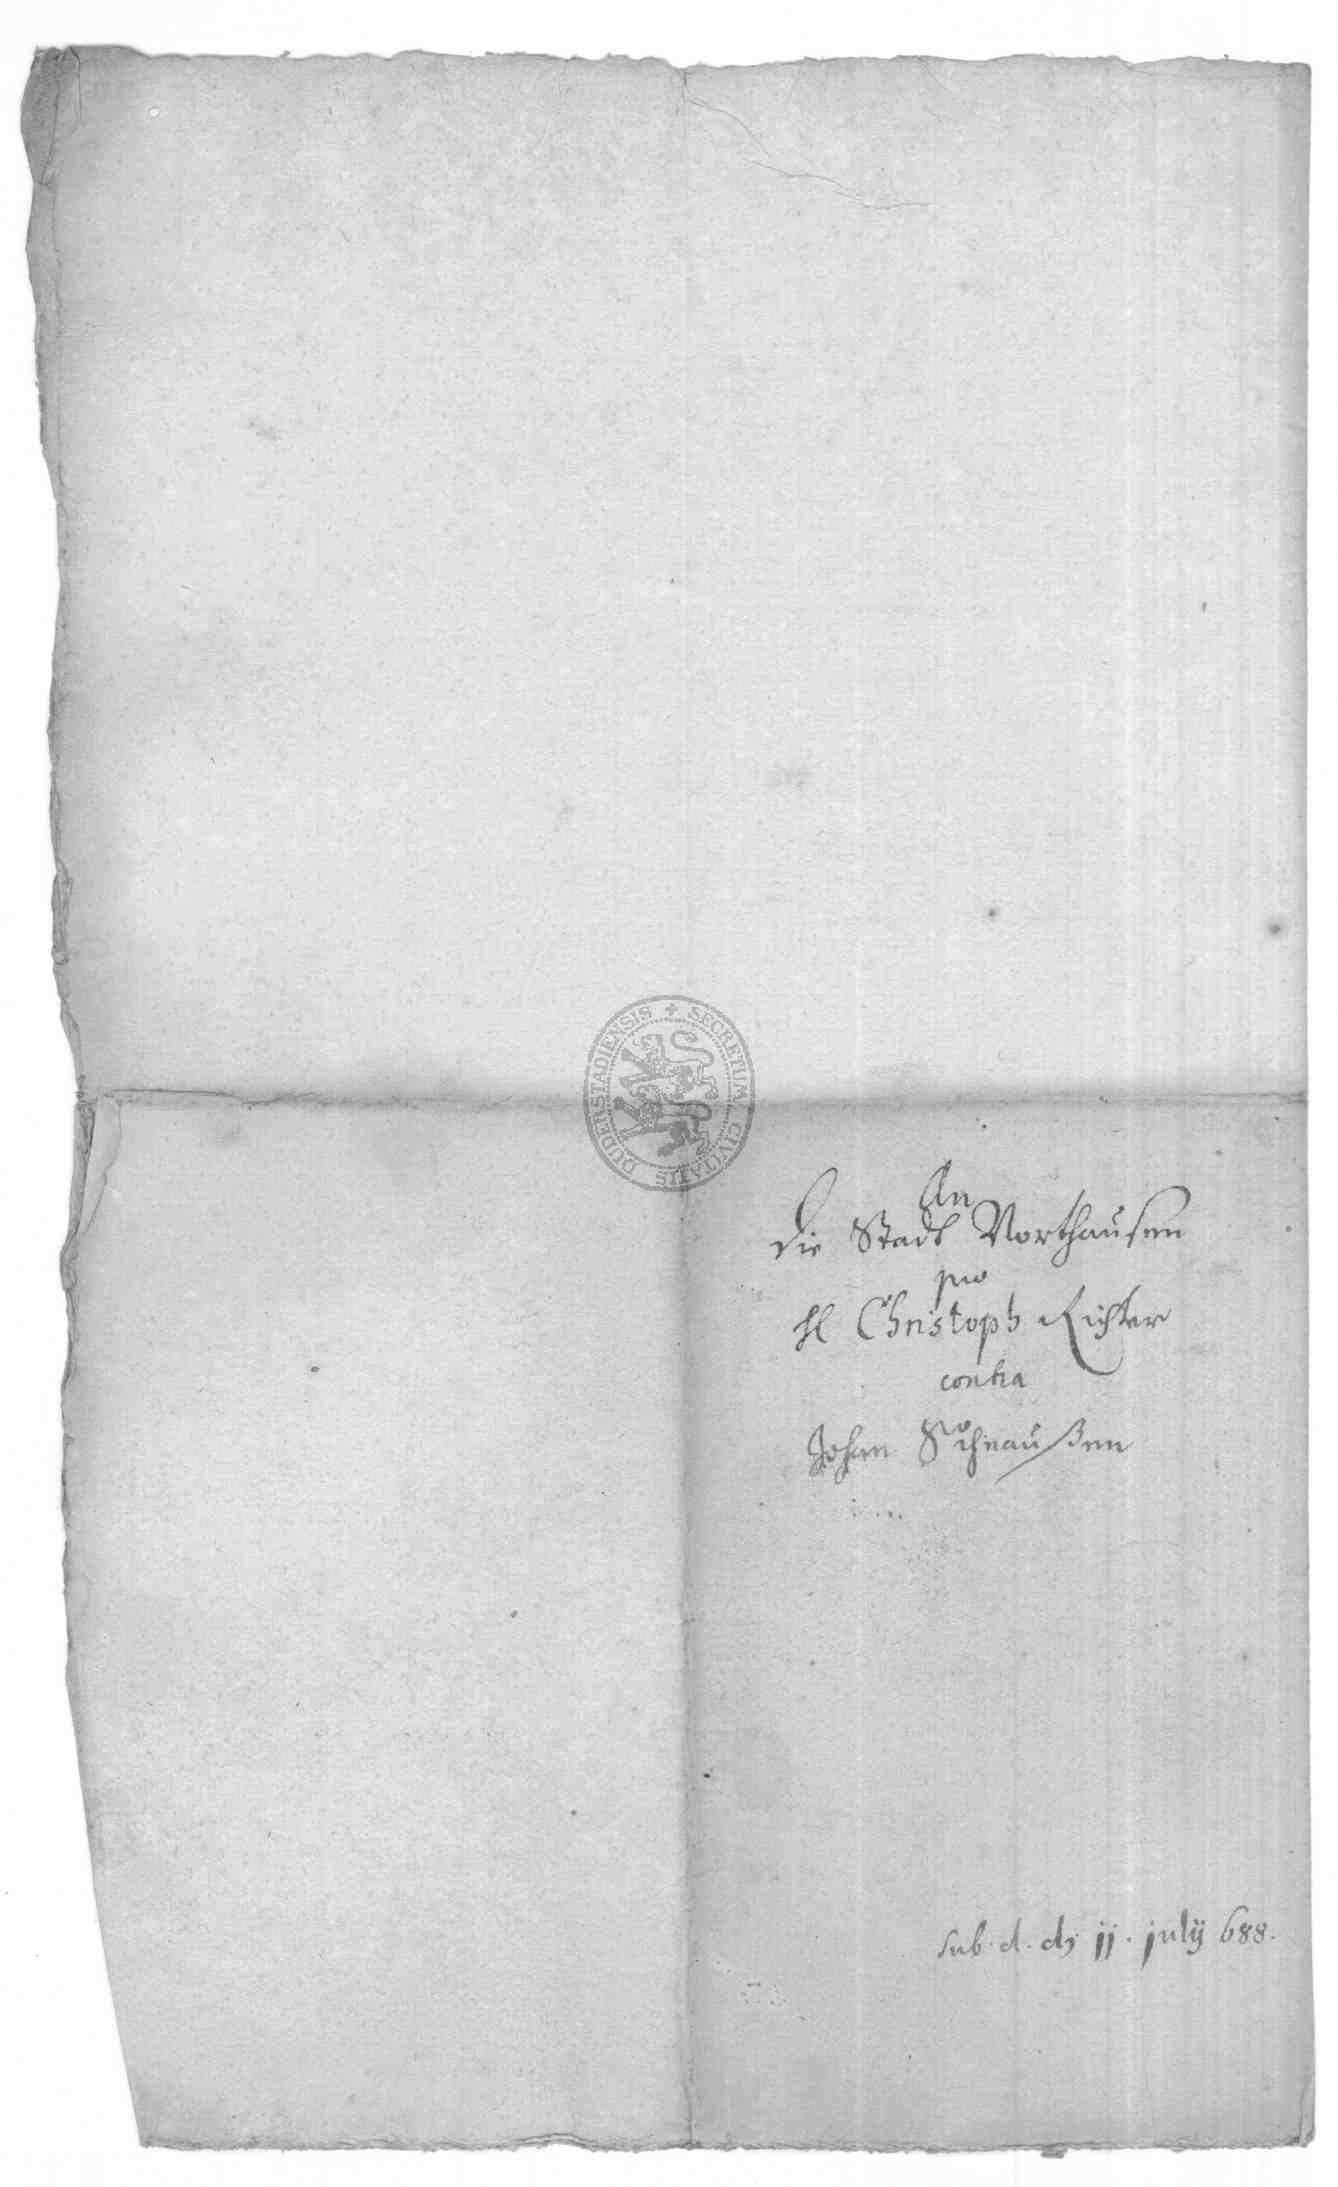 SECRETUM CIVITATIS DUDERSTADIENSIS
An
die Stadt Northausen
pro
H Christoph Richter
contra
Johan Schnaußen
sub. d. d. 11. july 688.